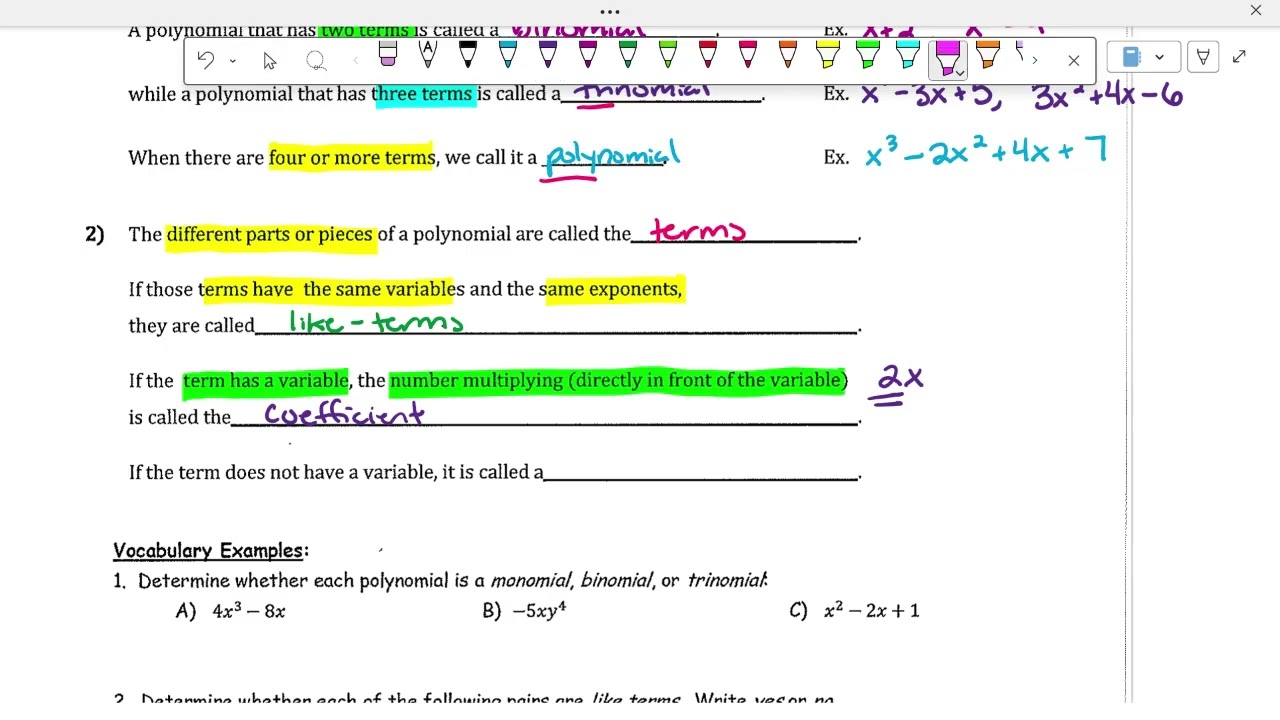 A polynomial that has two terms is called a binomial. Ex. x+2
while a polynomial that has three terms is called a trinomial. Ex. x² -3x+5, 3x²+4x-6
When there are four or more terms, we call it a polynomial. Ex. x³ -2x² +4x+7
2) The different parts or pieces of a polynomial are called the terms.
If those terms have the same variables and the same exponents,
they are called like-terms.
If the term has a variable, the number multiplying (directly in front of the variable) 2x
is called the coefficient.
If the term does not have a variable, it is called a.
Vocabulary Examples:
1. Determine whether each polynomial is a monomial, binomial, or trinomial.
A) 4x³ – 8x B) –5xy⁴ C) x² – 2x + 1
2. Determine whether each of the following pairs are like terms. Write yes or no.